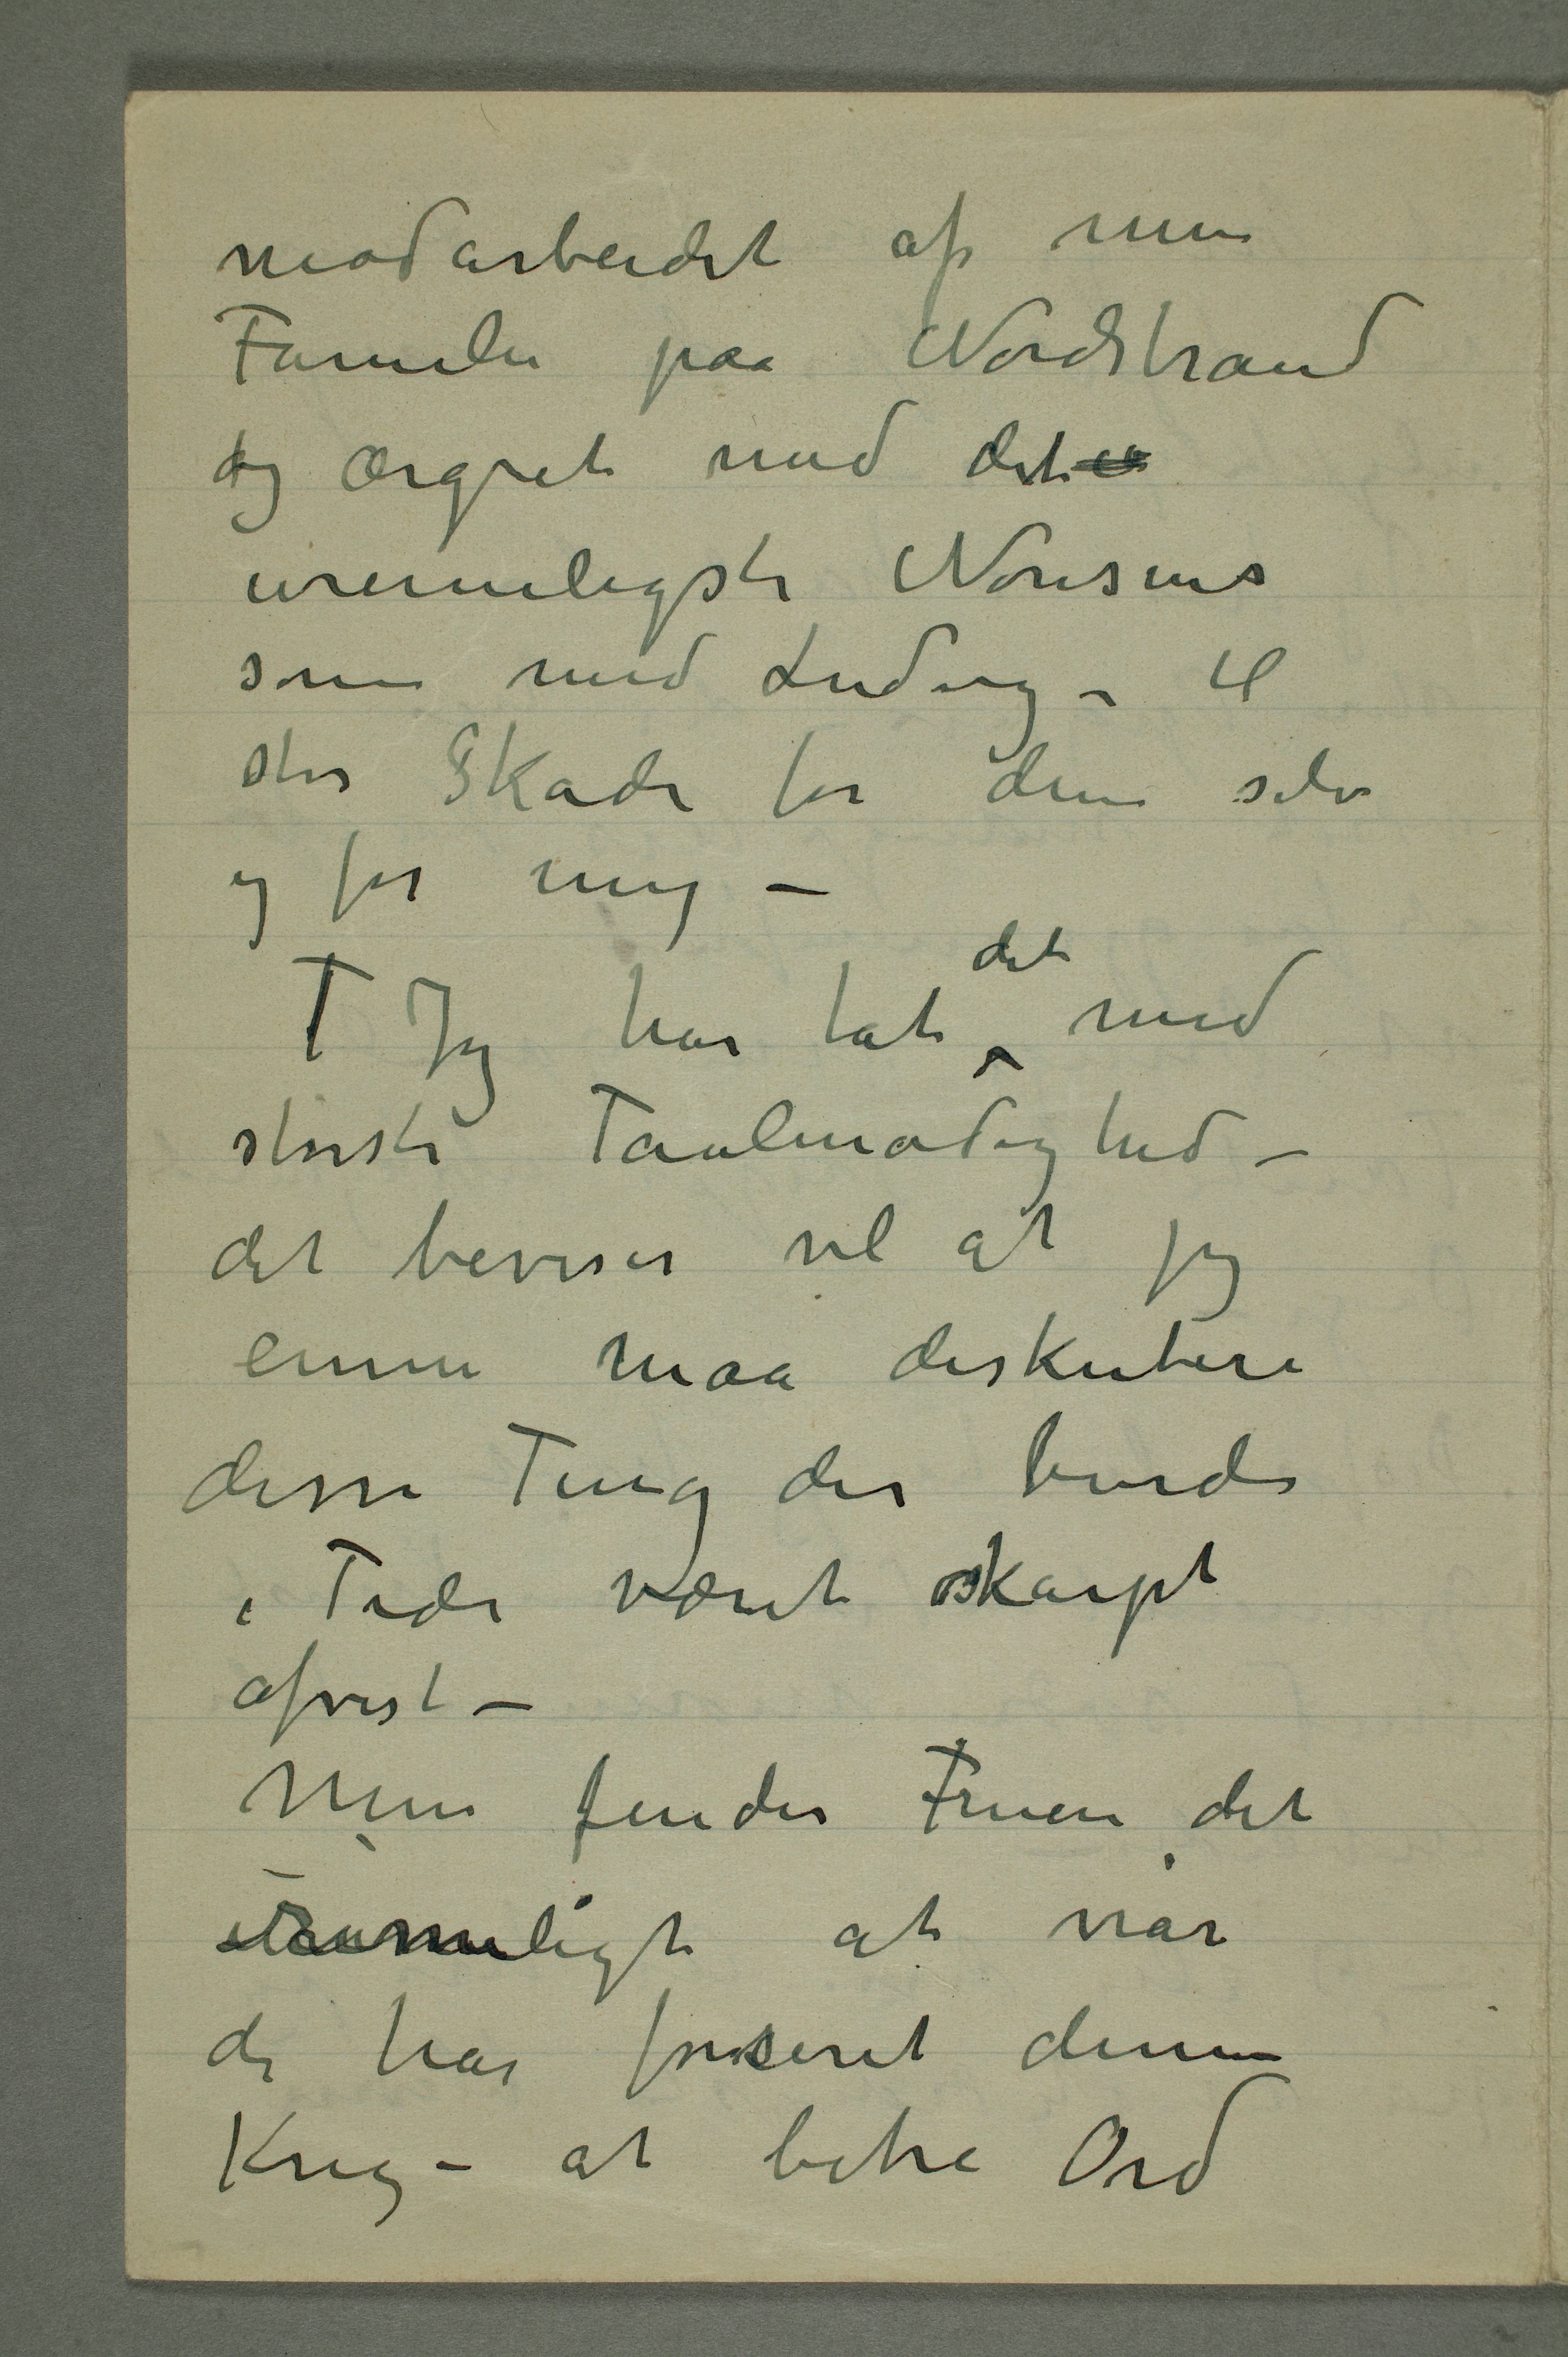 modarbeidet af min
Familie paa Nordstrand
og ærgret med det
urimeligste Nonsens
som med Ludvig – til
stor Skade for dem selv
og for mig –
T Jeg har tat det med
størst Taalmodighed –
det beviser vel at jeg
ennu maa diskutere
disse Ting der burde
i Tide været skarpt
afvist –
Men finder Fruen det
rimeligt at når
de har forseret denne
Krig – at bitre Ord